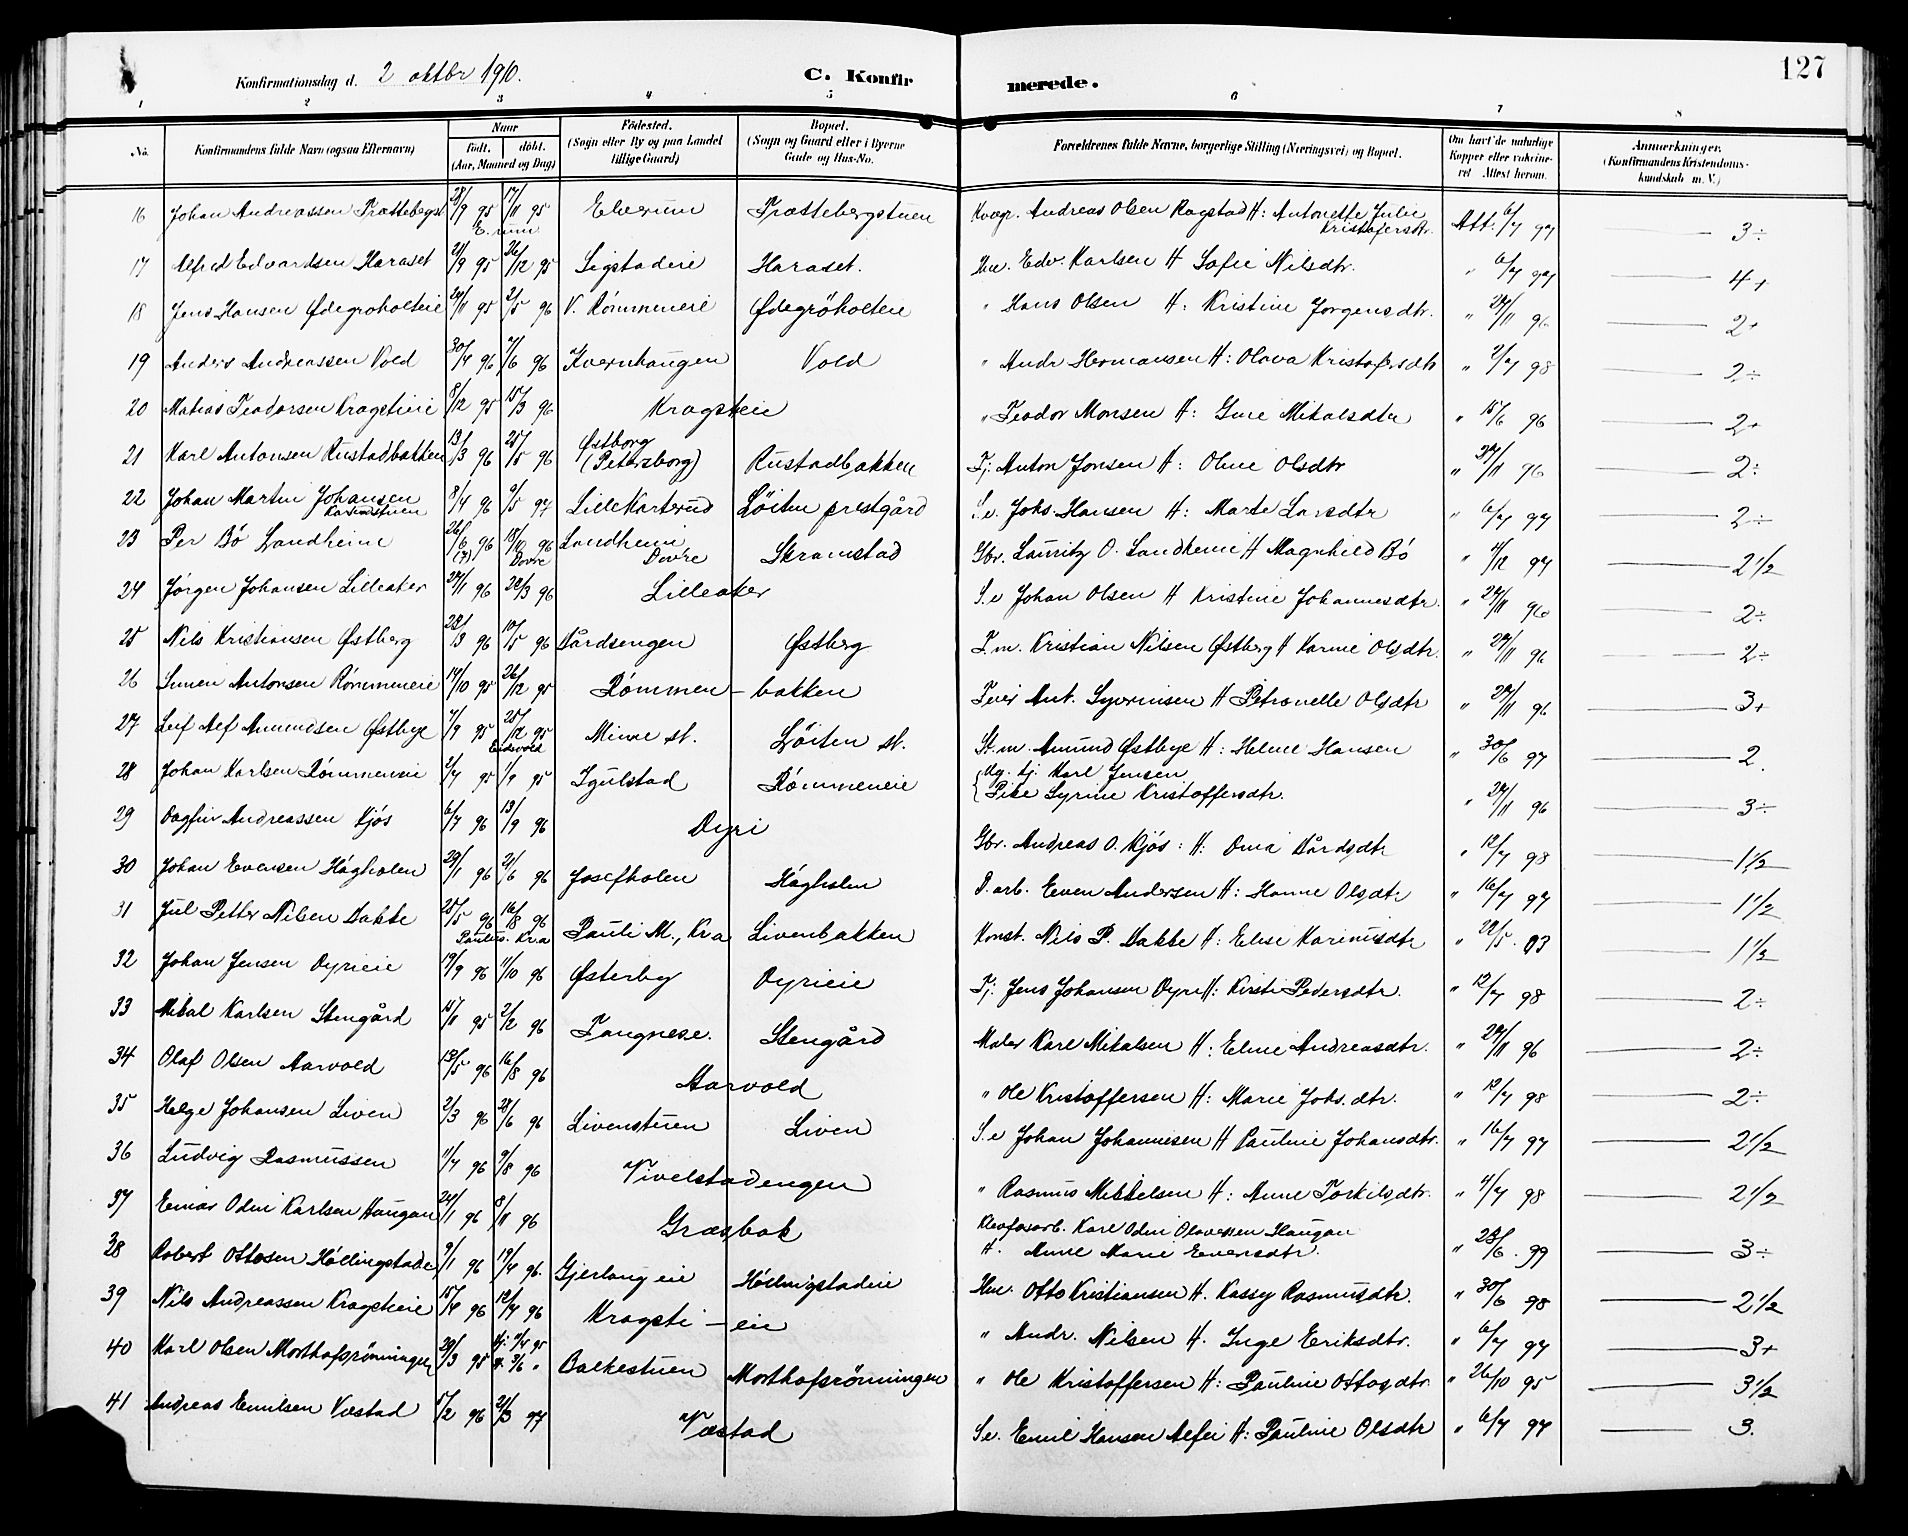 127
Konfirmationsdag d. 2 oktbr 1910. C. Konfirmerede.
1 2 3 4 5 6 7 8
No. Konfirmandens fulde Navn (ogsaa Efternavn) Naar født. døbt. (Aar, Maaned og Dag) Fødested. (Sogn eller By og paa Landet tillige Gaard) Bopæl. (Sogn og Gaard eller i Byerne Gade og Hus-No. Forældrenes fulde Navne, borgerlige Stilling (Næringsvei) og Bopæl. Om havt de naturlige Kopper eller vaksineret Attest herom. Anmerkninger. (Konfirmandens Kristendomskundskab m. V.)
16 Johan Andreassen Trættebergst 28/9 95 17/11 95 E.rum Elverum Trættebergstuen Andreas Olsen Rogstad H: Antonette Julie Kristofersdtr. Att. 6/7 97 3÷
17 Alfred Edvardsen Haraset 21/9 95 26/12 95 Sigstadeie Haraset. Hm. Edv. Karlsen H Sofie Nilsdtr. " 6/7 97 4+
18 Jens Hansen Ødegroholteie 24/11 95 2/5 96 V. Rømmeneie Ødegröholteie " Hans Olsen H: Kristine Jorgensdtr. " 24/11 96 2+
19 Anders Andreassen Vold 30/4 96 7/6 96 Kvernhaugen Vold " Andr Hermansen H: Olava Kristofersdtr " 2/7 98 2÷
20 Matias Teodorsen Kragstieie 8/12 95 15/3 96 Kragsteie " Teodor Monsen H: Gine Mikalsdtr " 15/6 96 2+
21 Karl Antonsen Rustadbakken 13/3 96 25/5 96 Østborg (Petersborg) Rustadbakken Tj. Anton Jonsen H: Oline Olsdtr " 24/11 96 2÷
22 Johan Martin Johansen 8/4 96 9/5 97 Lille Korterud Löiten prestgård S.e. Johs. Hansen H: Marte Larsdtr " 6/7 97 2÷
23 Per Bö Landheim 26/6 96 18/10 96 Dovre Landheim Dovre Skramstad Gbr. Lauritz O. Landheim H Magnhild Bö " 4/12 97 2 1/2
24 Jørgen Johansen Lilleaker 27/1 96 22/3 96 Lilleaker S.e Johan Olsen H Kristine Johannesdtr. " 24/11 96 2÷
25 Nils Kristiansen Østberg 28/3 96 10/5 96 Bårdsengen Østberg T.m. Kristian Nilsen Østberg H Karine Olsdtr. " 24/11 96 2÷
26 Simen Antonsen Römmeneie 14/10 95 26/12 95 Rømmen-bakken Ant. Syversen H Petronelle Olsdtr " 24/11 96 3+
27 Leif Alf Amundsen Østbye 7/9 95 25/12 95 Eidsvold Minne st. Löiten st. St.m. Amund Østbye H: Helene Hansen " 30/6 97 2
28 Johan Karlsen Römmeneie 2/7 95 1/9 95 Igulstad Römmeneie { Ug. tj. Karl Jensen
{ Pike Syrine Kristoffersdtr. " 24/11 96 3÷
29 Dagfin Andreassen Kjös 6/7 96 13/9 96 Dyri Gbr. Andreas O. Kjös: H: Oma Bårdsdtr " 12/7 98 1 1/2
30 Johan Evensen Höghölen 29/1 96 21/6 96 Josefholen Höghölen P. arb. Even Andersen H: Hanne Olsdtr " 16/7 97 1 1/2
31 Jul Petter Nilsen Bakke 25/5 96 16/8 96 Paulus. Kr.a Pauli M., Kra Livenbakken Konst. Nils P. Bakke H: Elise Karinusdtr " 22/5. 03 1 1/2
32 Johan Jensen Dyrieie 19/9 96 11/10 96 Østerby Dyrieie Tj. Jens Johansen Dyri H: Kirsti Pedersdtr. " 12/7 98 2÷
33 Mikal Karlsen Stengård 15/11 95 2/2 96 Tangnese. Stengård Maler Karl Mikalsen H: Eline Andreasdtr. " 24/11 96 2÷
34 Olaf Olsen Aarvold 13/5 96 16/8 96 Aarvold " Ole Kristoffersen H: Marie Johs.dtr. " 12/7 98 2÷
35 Helge Johansen Liven 2/3 96 28/6 96 Livenstuen Liven S.e Johan Johannesen H Pauline Johansdtr. " 16/7 97 2 1/2
36 Ludvig Rasmussen 11/7 96 9/8 96 Vivelstadengen " Rasmus Mikkelsen H: Anne Torkilsdtr. " 4/7 98 2 1/2
37 Einar Odin Karlsen Haugan 24/1 96 8/11 96 Græsbak Karl Odin Olavessen Haugan
H. Anne Marie Eversdtr. " 28/6. 99 3÷
38 Robert Ottosen Höllingstadei 9/1 96 19/4 96. Gjerlaug eie Höllingstadeie Hm. Otto Kristiansen H. Kassy Rasmusdtr. " 30/6 98 2 1/2
39 Nils Andreassen Kragstieie 15/4 96 12/7 96 Kragsti-eie " Andr. Nilsen H. Inge Eriksdtr. " 6/7 97 3+
40 Karl Olsen Morthafsrönningen 29/3 95 Balkestuen Morthafsrönningen " Ole Kristoffersen H: Pauline Ottosdtr. " 26/10 95 3 1/2
41 Andreas Emilsen Væstad 15/2 96 21/3 97 Væstad S.e. Emil Hansen Alfei H: Pauline Olsdtr " 6/7 97 3.